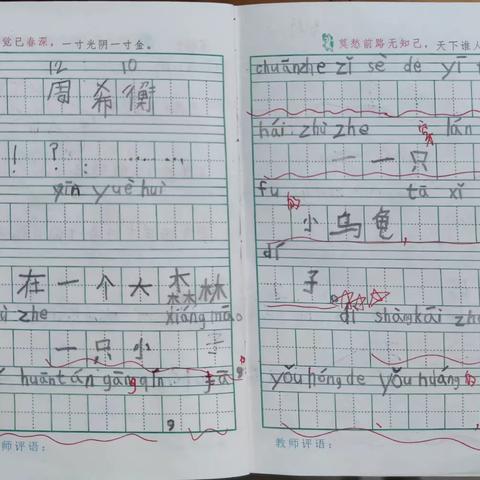 觉已春深，一寸光阴一寸金。
12 10
周希衡
！ ？ ： ……
yīn yuè huì
在一个大森林
zhe xiáng māo
一只小子
huān tán gāng qín
，
教师评语：
莫愁前路无知己，天下谁人
chuānzhe zǐ sè de yī
hái zhù zhe lán
一一只
fu 的 tā xǐ
小乌龟，
dí
子。
dì shàng kāi zhe
yǒu hóng de yǒu huáng 的
教师评语：